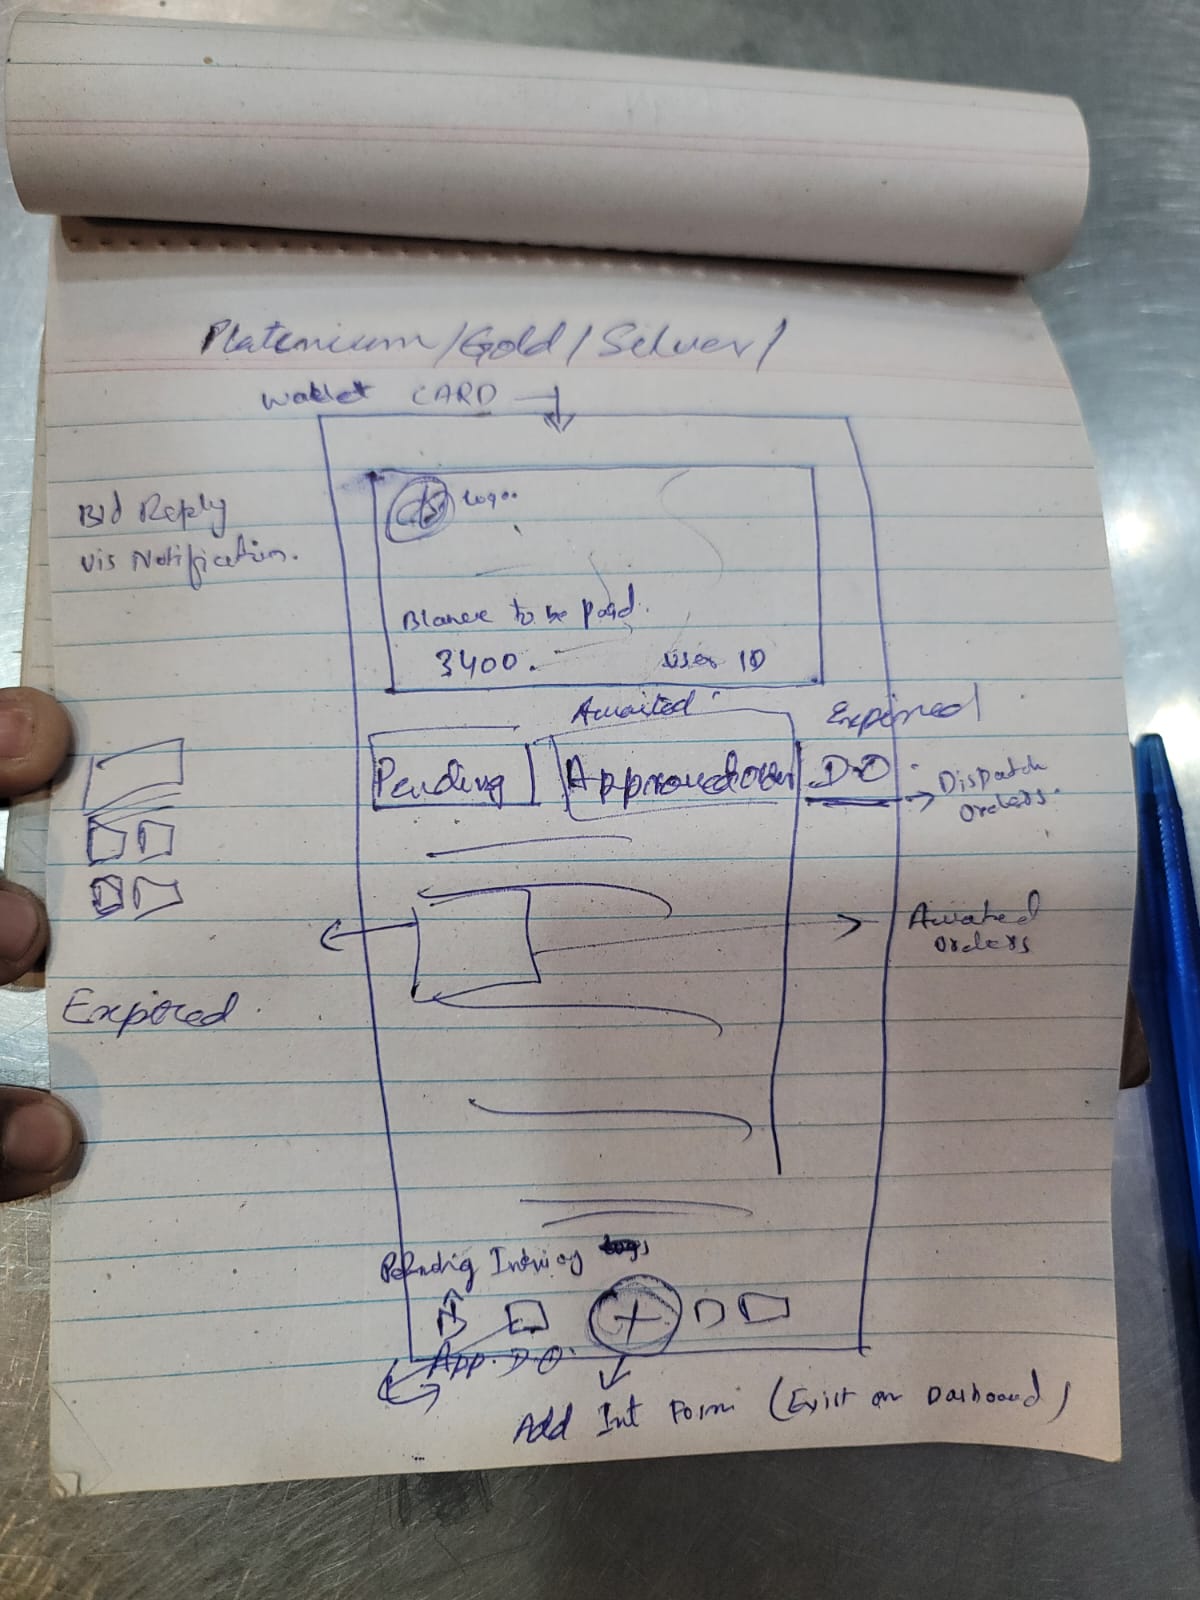 Platenium/Gold/Silver/
Wallet CARD
Bid Reply
vis Notification.
Logo.
Blance to be paid.
3400.
User ID
Awaited
Expired
Pending
Approved
D.O
Dispatch
Orders.
Awaited
orders
Expired
Pending
App. D.O.
Add Int Form (Exist on Dashboard)